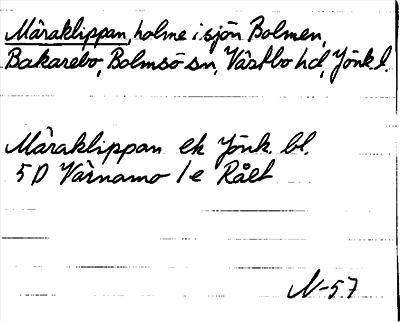 Måraklippan, holme i sjön Bolmen,
Bakarebo, Bolmsö sn, Västbo hd, Jönk l.
Måraklippan ek Jönk bl.
5 D Värnamo 1e Rået
N-57